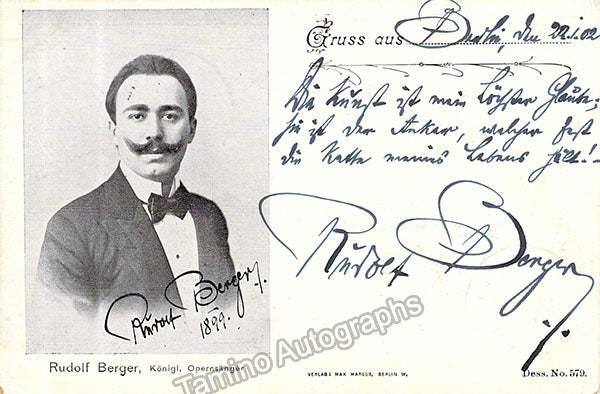 Gruss aus Berlin, den 22.1.02
Die Kunst ist mein höchster Glaube,
sie ist der Anker, welcher fest
die Kette meines Lebens hält!
Rudolf Berger
Rudolf Berger
1899.
Rudolf Berger, Königl. Opernsänger
VERLAG: MAX MARCUS, BERLIN W.
Dess. No. 579.
Tamino Autographs